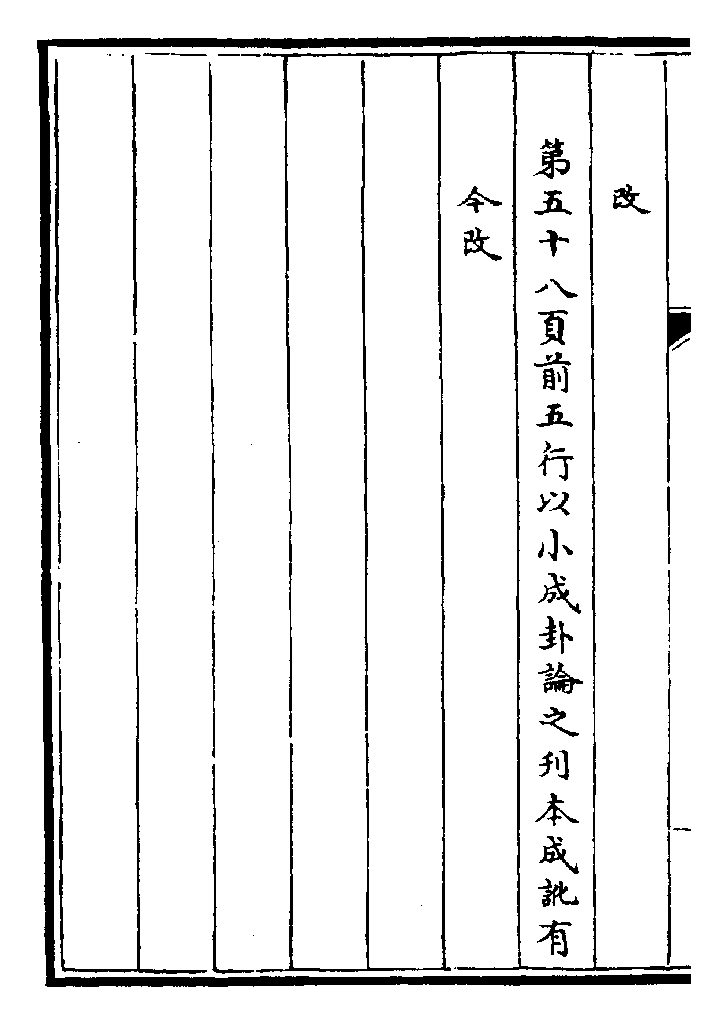 改
第五十八頁前五行以小成卦論之刋本成訛有
今改